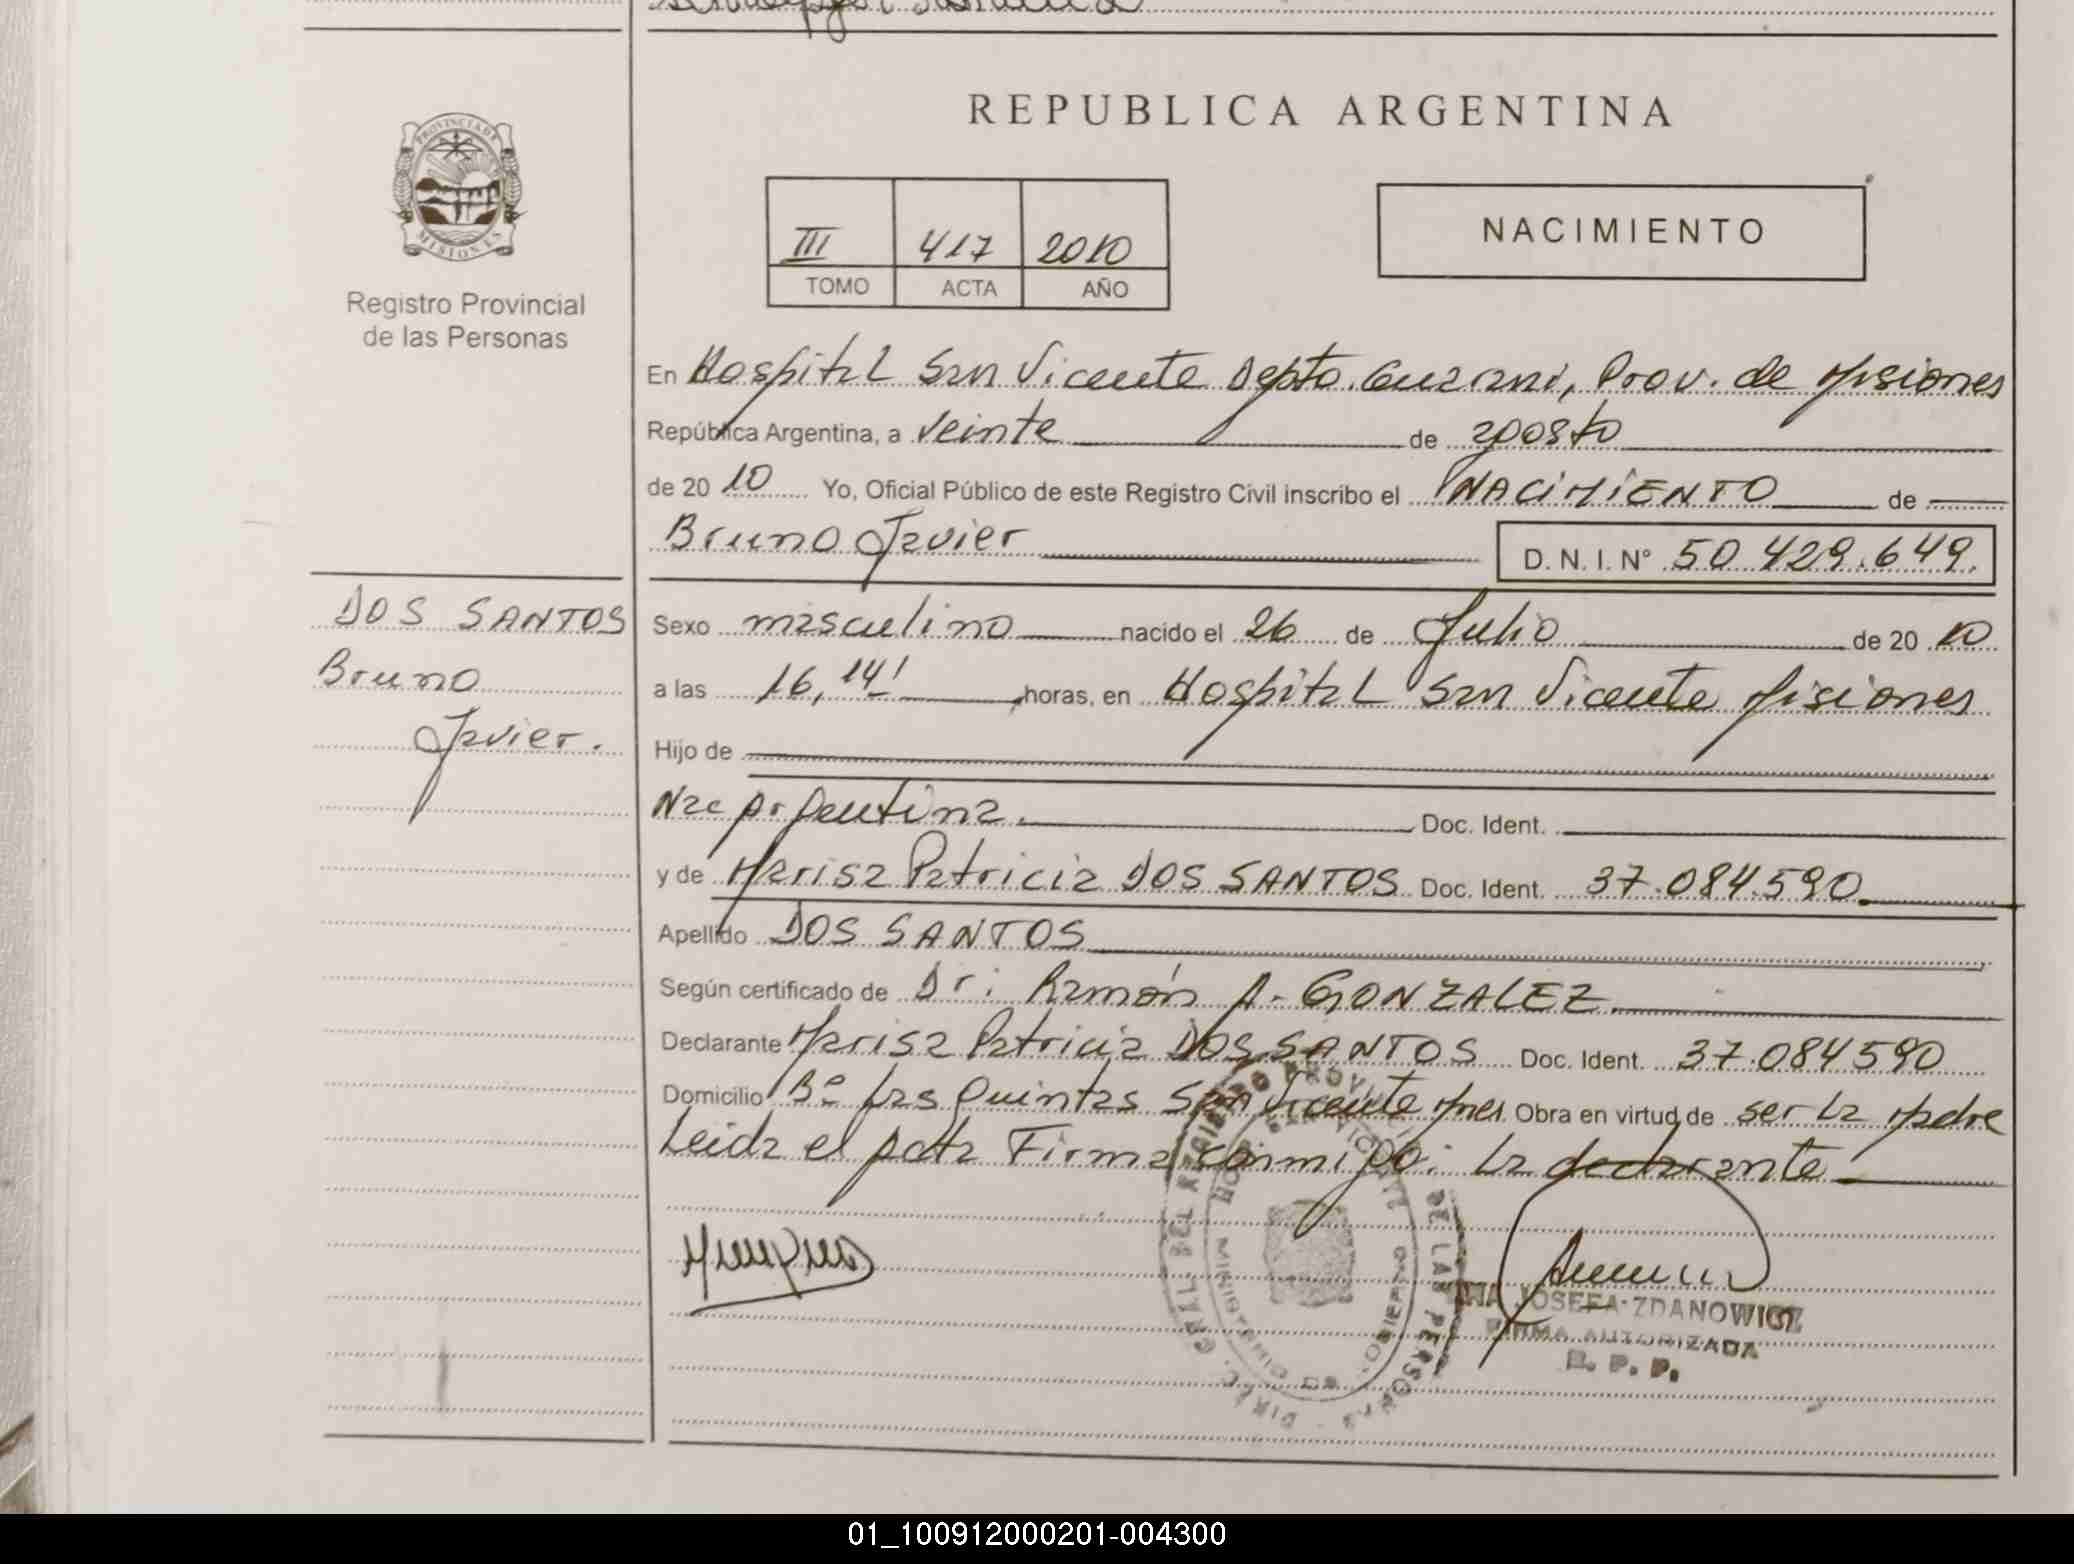 REPUBLICA ARGENTINA
PROVINCIA DE
MISIONES
Registro Provincial
de las Personas
III 417 2010
TOMO ACTA AÑO
NACIMIENTO
En Hospital San Vicente Depto. Guarani, Prov. de Misiones
República Argentina, a veinte de agosto
de 20 10 Yo, Oficial Público de este Registro Civil inscribo el NACIMIENTO de
Bruno Javier
D. N. I. N° 50.429.649.
DOS SANTOS
Bruno
Javier.
Sexo masculino nacido el 26 de Julio de 20 10
a las 16,14' horas, en Hospital San Vicente Misiones
Hijo de
Nac Argentina. Doc. Ident.
y de Marisa Patricia DOS SANTOS Doc. Ident. 37.084.590.
Apellido DOS SANTOS
Según certificado de Dr: Ramón A. GONZALEZ.
Declarante Marisa Patricia DOS SANTOS Doc. Ident. 37.084590
Domicilio B° Las Quintas San Vicente Mnes Obra en virtud de ser la Madre
Leida el Acta Firma conmigo: la declarante
DIREC. GRAL DEL REGISTRO PROVINCIAL DE LAS PERSONAS
MINISTERIO DE GOBIERNO
JOSEFA ZDANOWICZ
FIRMA AUTORIZADA
R. P. P.
01_100912000201-004300